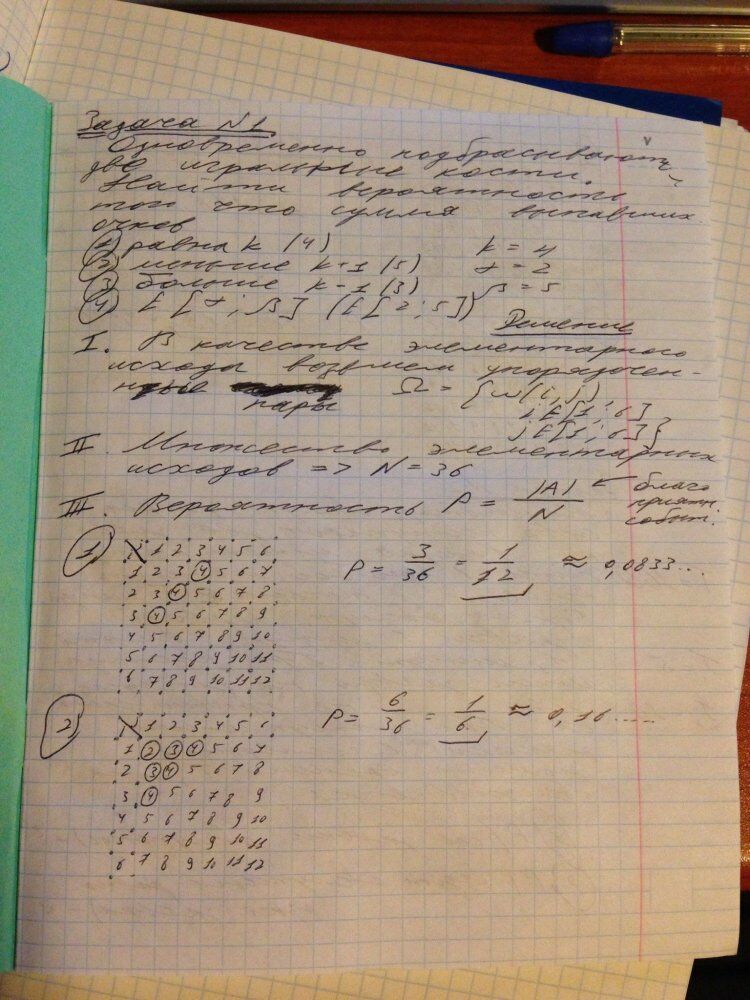 Задача N1
Одновременно подбрасывают
две игральные кости.
Найти вероятность
того что сумма выпавших
очков
① равна k (4) k = 4
② меньше k+1 (5) α = 2
③ больше k-1 (3) β = 5
④ ∈ [α; β] (∈ [2; 5])
Решение
I. В качестве элементарного
исхода возьмем упорядочен-
ные пары Ω = {ω(i, j),
i ∈ [1; 6]
j ∈ [1; 6]}
II. Множество элементарных
исходов => N = 36
III. Вероятность P = |A|/N ← благо
приятн.
событ.
① 1 2 3 4 5 6
1 2 3 4 5 6 7
2 3 4 5 6 7 8
3 4 5 6 7 8 9
4 5 6 7 8 9 10
5 6 7 8 9 10 11
6 7 8 9 10 11 12
P = 3/36 = 1/12 ≈ 0,0833...
② 1 2 3 4 5 6
1 2 3 4 5 6 7
2 3 4 5 6 7 8
3 4 5 6 7 8 9
4 5 6 7 8 9 10
5 6 7 8 9 10 11
6 7 8 9 10 11 12
P = 6/36 = 1/6 ≈ 0,16.....